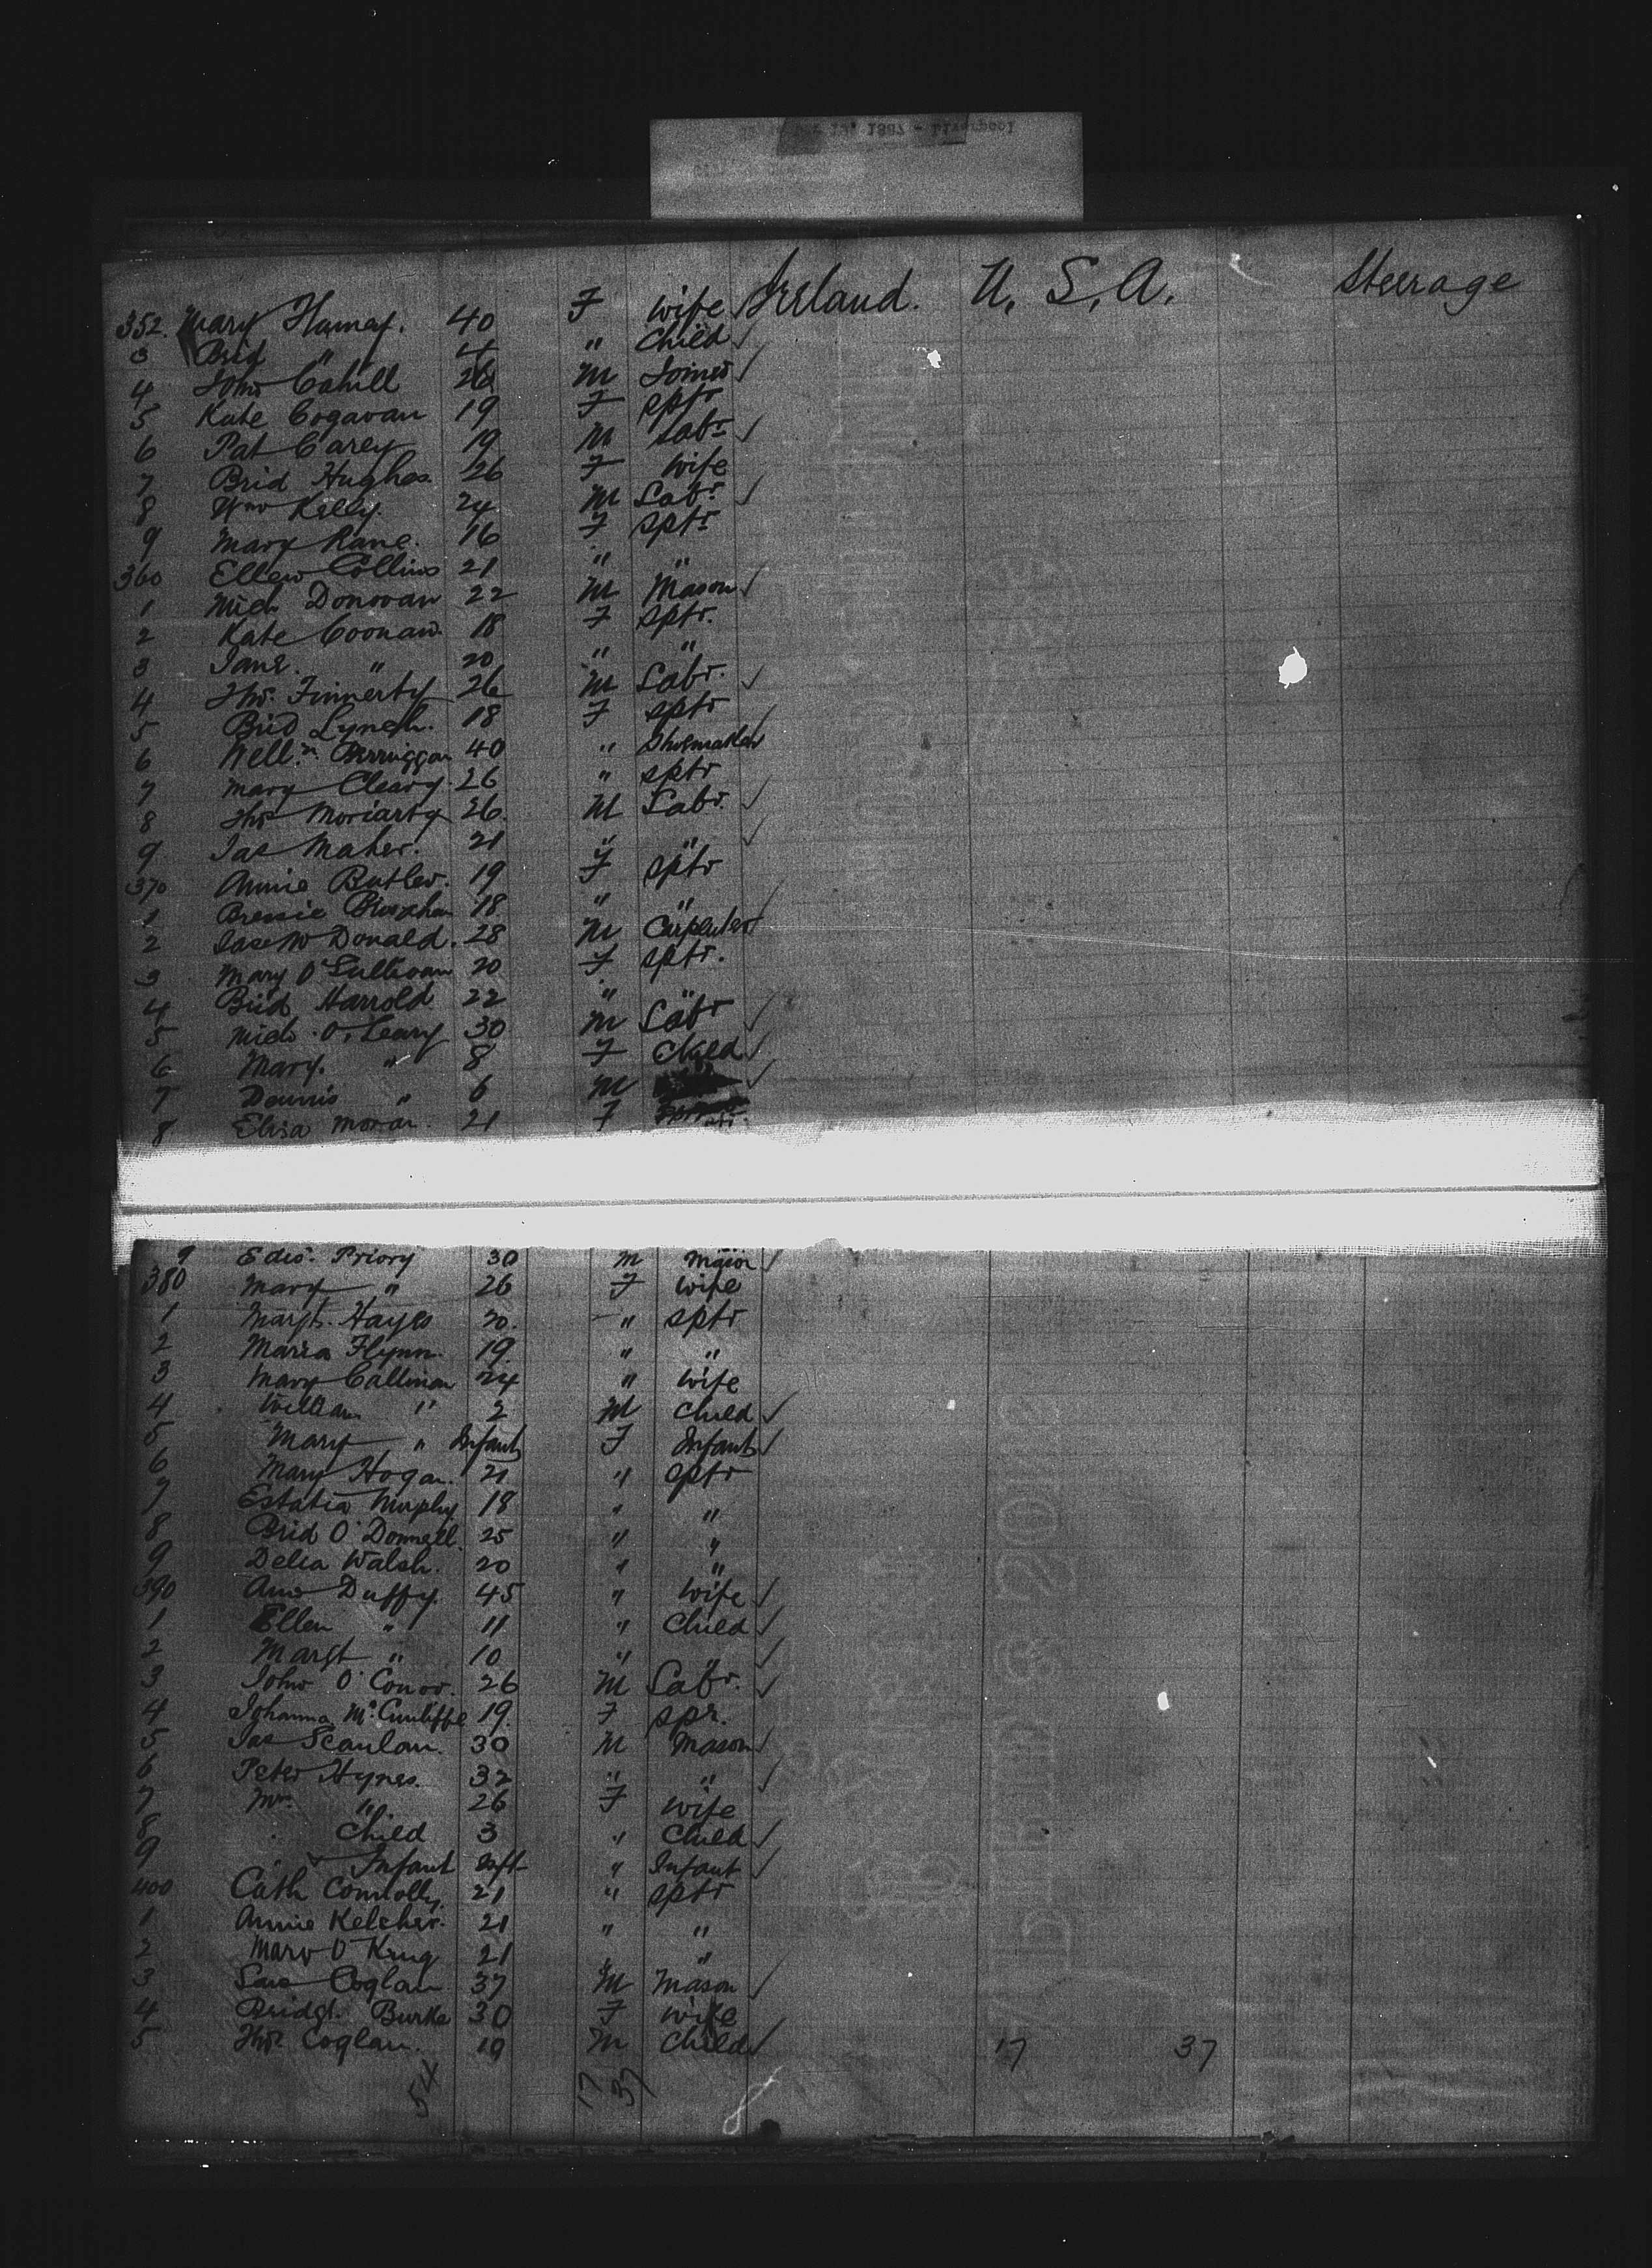 1887 - Liverpool
352. Mary 40 F wife Ireland. U. S. A. Steerage
3 Brid " 4 " Child
4 John Cahill 26 M Joiner
5 Kate Cogavan 19 F sptr
6 Pat Carey 19 M Labr
7 Brid Hughes. 26 F wife
8 Wm Kelly. 24 M Labr
9 Mary Kane. 16 F sptr
360 Ellen Collins 21 " "
1 Mich Donovan 22 M Mason
2 Kate Coonan 18 F sptr.
3 Jane. " 20 " "
4 Thos. Finnerty 26 M Labr.
5 Brid Lynch. 18 F sptr
6 40 " Shoemaker
7 Mary Cleary. 26 " sptr
8 Thos Moriarty 26. M Labr.
9 Jas Maher. 21 " "
370 Annie Butler. 19 F sptr
1 18 " "
2 Jas McDonald. 28 M Carpenter
3 Mary O'Sullivan 20 F sptr.
4 Brid Harrold 22 " "
5 Mich O'Leary 30 M Labr
6 Mary. " 8 F Child
7 Dennis " 6 M
8 Eliza Moran. 21 F
9 Edw. Priory 30 M Mason
380 Mary " 26 F wife
1 Margt. Hayes 20. " sptr
2 Maria Flynn. 19. " "
3 Mary Callinan 24 " wife
4 William " 2 M Child
5 Mary " Infant F Infant
6 Mary Hogan. 21 " sptr
7 Estatia Murphy 18 " "
8 Brid O'Donnell. 25 " "
9 Delia Walsh. 20 " "
390 Ann Duffy. 45 " wife
1 Ellen " 11 " Child
2 Margt " 10 " "
3 John O'Conor. 26 M Labr.
4 Johanna McCunliffe 19. F spr.
5 Jas Scanlan. 30 M Mason
6 Peter Hynes. 32 " "
7 Mrs. " 26 F wife
8 Child 3 " Child
9 Infant Inft " Infant
400 Cath Connolly 21 " sptr
1 Annie Kelcher. 21 " "
2 Mary O' 21 " "
3 Coglan 37 M Mason
4 Bridgt. Burke 30 F wife
5 Thos. Coglan. 10 M Child 17 37
54 17 37
8